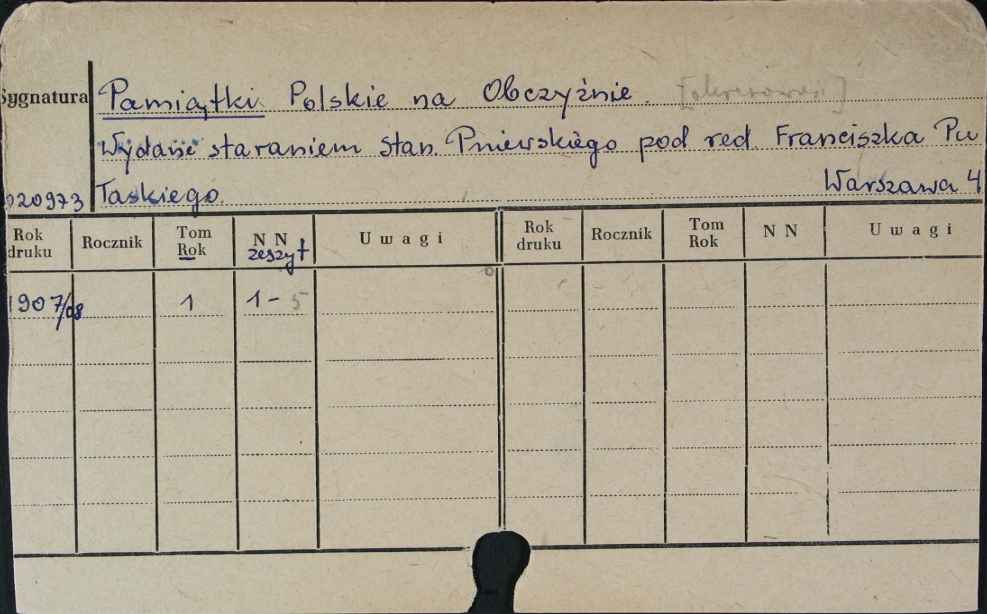 Sygnatura Pamiątki Polskie na Obczyźnie.
Wydanie staraniem Stan. Pniewskiego pod red. Franciszka Pu
020973 Taskiego. Warszawa 4
Rok druku Rocznik Tom Rok N N zeszyt Uwagi Rok druku Rocznik Tom Rok N N Uwagi
1907/08 1 1-5